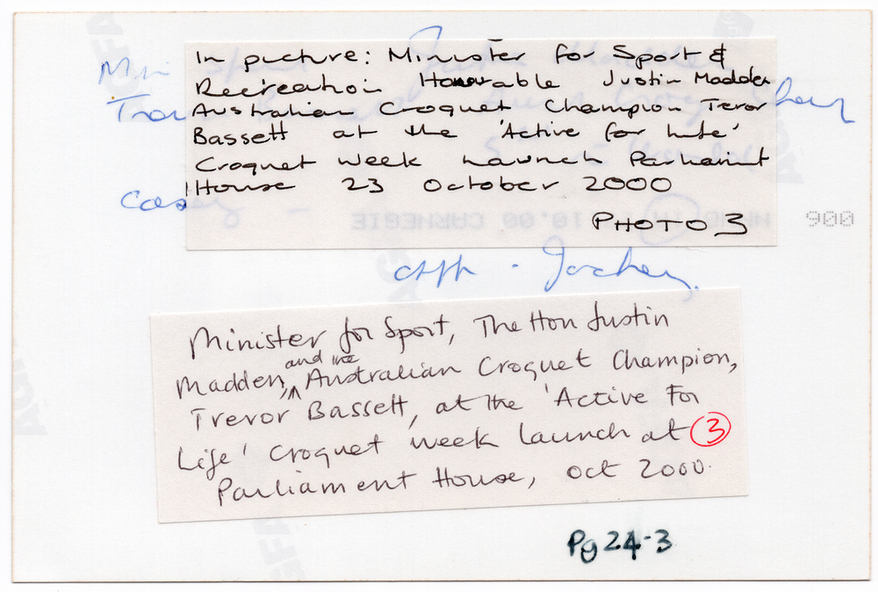 In picture: Minister for Sport &
Recreation Honourable Justin Madden
Australian Croquet Champion Trevor
Bassett at the 'Active for Life'
Croquet Week Launch Parliament
House 23 October 2000
PHOTO 3
900
Minister for Sport, The Hon Justin
Madden, and the Australian Croquet Champion,
Trevor Bassett, at the 'Active For
Life' Croquet Week launch at 3
Parliament House, Oct 2000.
Pg 24-3